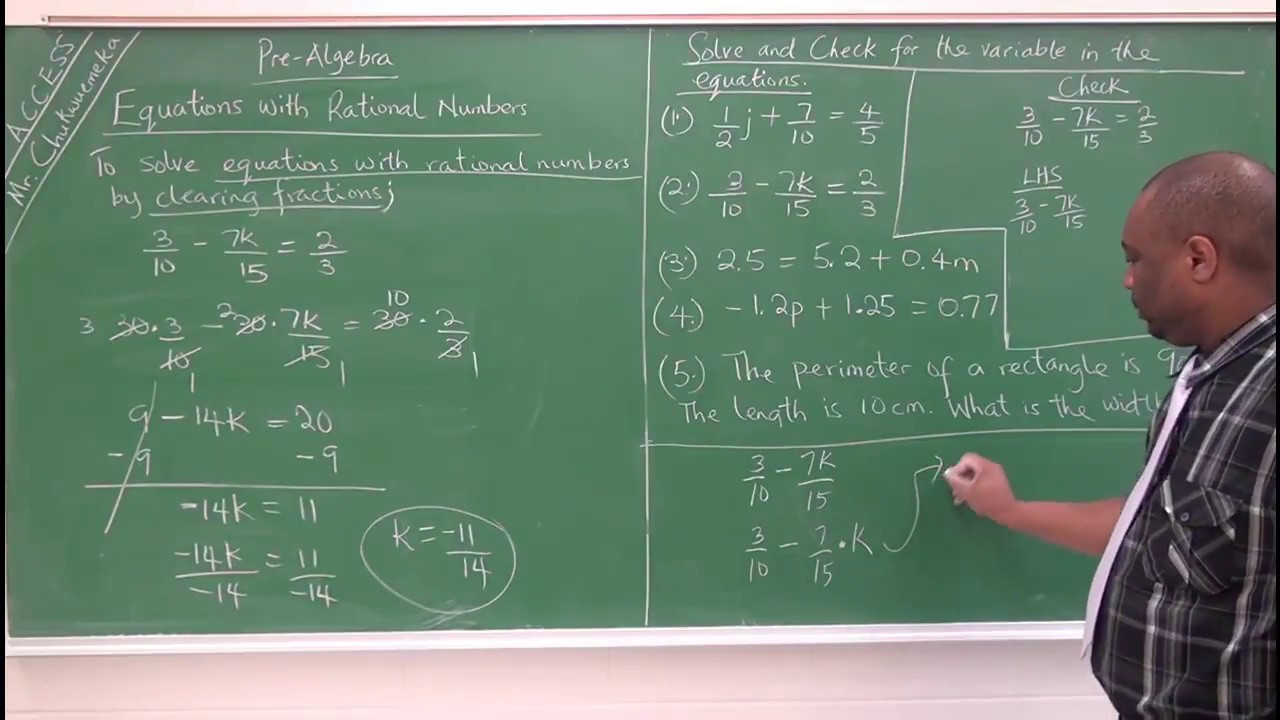 ACCESS
Mr. Chukwuemeka
Pre-Algebra
Equations with Rational Numbers
To solve equations with rational numbers
by clearing fractions;
3/10 - 7k/15 = 2/3
3 30 · 3/10 1 - 2 30 · 7k/15 1 = 10 30 · 2/3 1
9 - 14k = 20
-9 -9
-14k = 11
-14k/-14 = 11/-14
k = -11/14
Solve and Check for the variable in the
equations.
(1.) 1/2 j + 7/10 = 4/5
(2.) 3/10 - 7k/15 = 2/3
(3.) 2.5 = 5.2 + 0.4m
(4.) -1.2p + 1.25 = 0.77
(5.) The perimeter of a rectangle is
The length is 10 cm. What is the width
Check
3/10 - 7k/15 = 2/3
LHS
3/10 - 7k/15
3/10 - 7k/15
3/10 - 7/15 · k